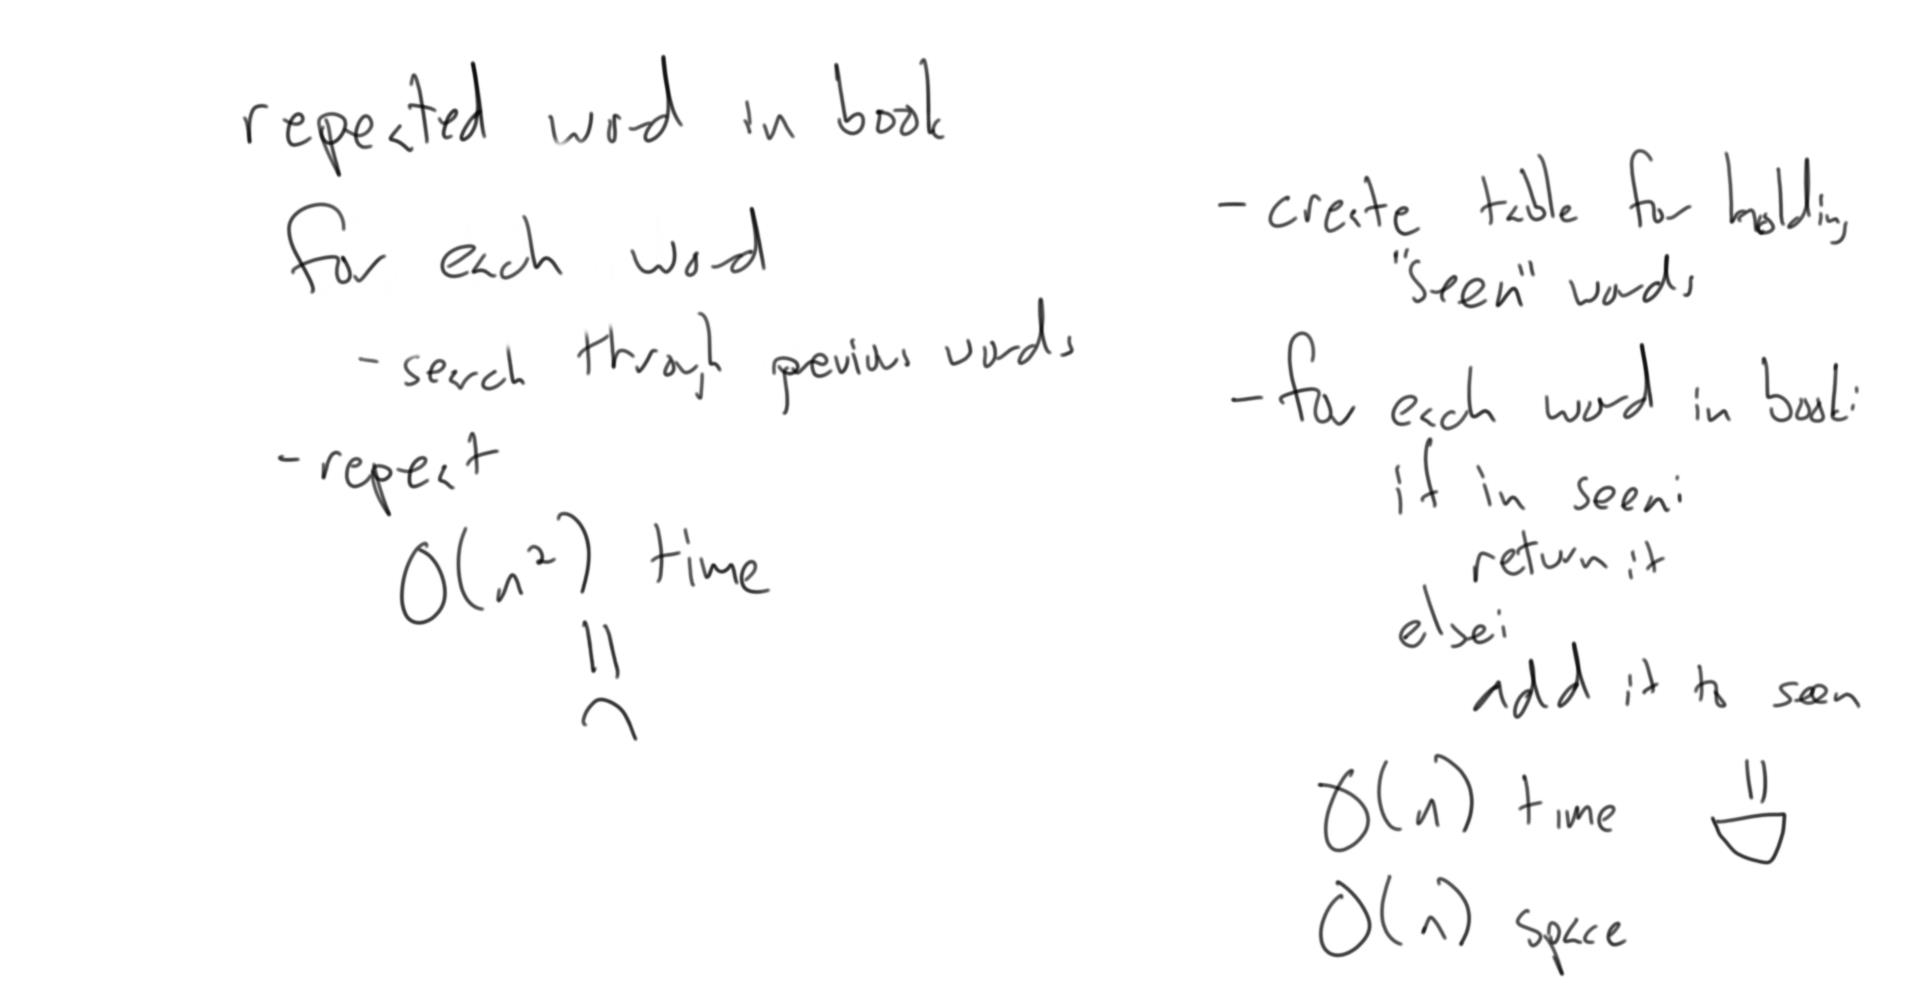 repeated word in book
for each word
- search through previous words
- repeat
O(n²) time
- create table for holding
"seen" words
- for each word in book:
if in seen:
return it
else:
add it to seen
O(n) time
O(n) space